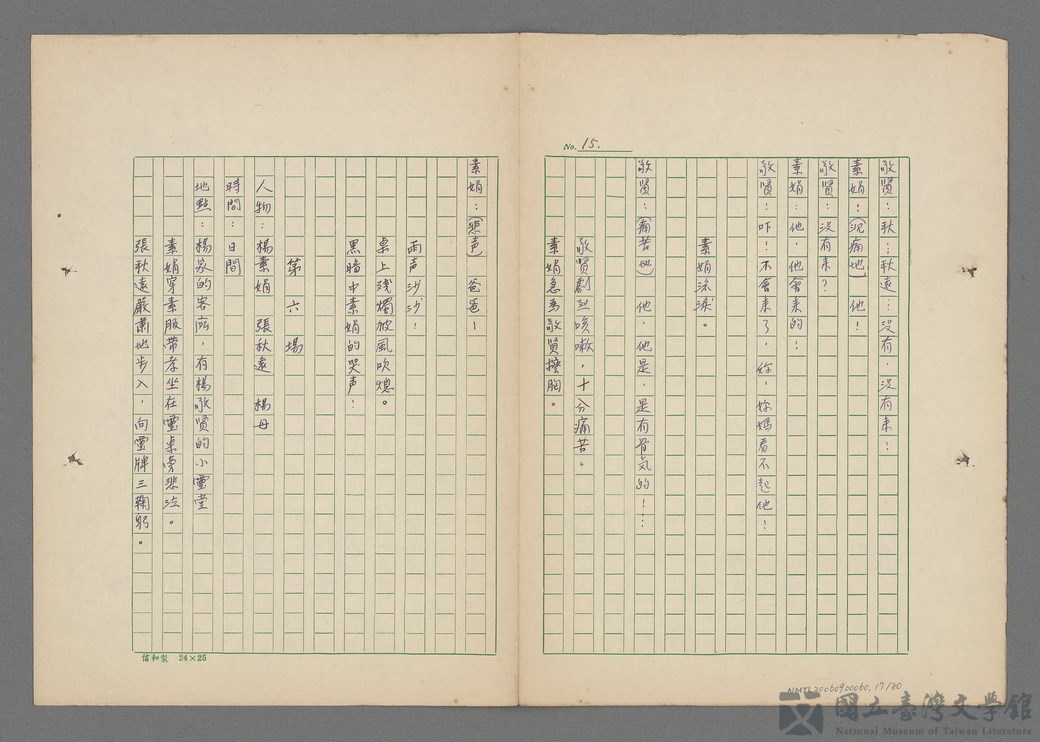 No. 15.
敬賢：秋…秋遠…沒有，沒有来！
素娟：（沉痛地）他！
敬賢：沒有来？
素娟：他，他會来的！
敬賢：吓！不會来了，妳，妳媽看不起他！
素娟涂淚。
敬賢：（痛苦地）他，他是，是有骨気的！…
敬賢劇烈咳嗽，十分痛苦。
素娟急為敬賢撫胸。
素娟：（悲声）爸爸！
雨声沙沙！
桌上殘燭被風吹熄。
黑暗中素娟的哭声！
第六場
人物：楊素娟 張秋遠 楊母
時間：日間
地點：楊家的客廳，有楊敬賢的小靈堂
素娟穿素服帶孝坐在靈桌旁悲泣。
張秋遠嚴肅地步入，向靈牌三鞠躬。
信和製 24×25
NMTL20060900060, 17/80
國立臺灣文學館
National Museum of Taiwan Literature